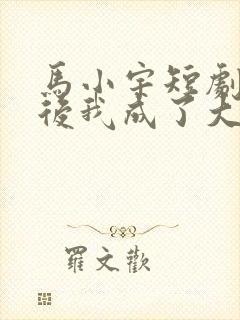 馬小宇短劇
後我成了大
羅文歡